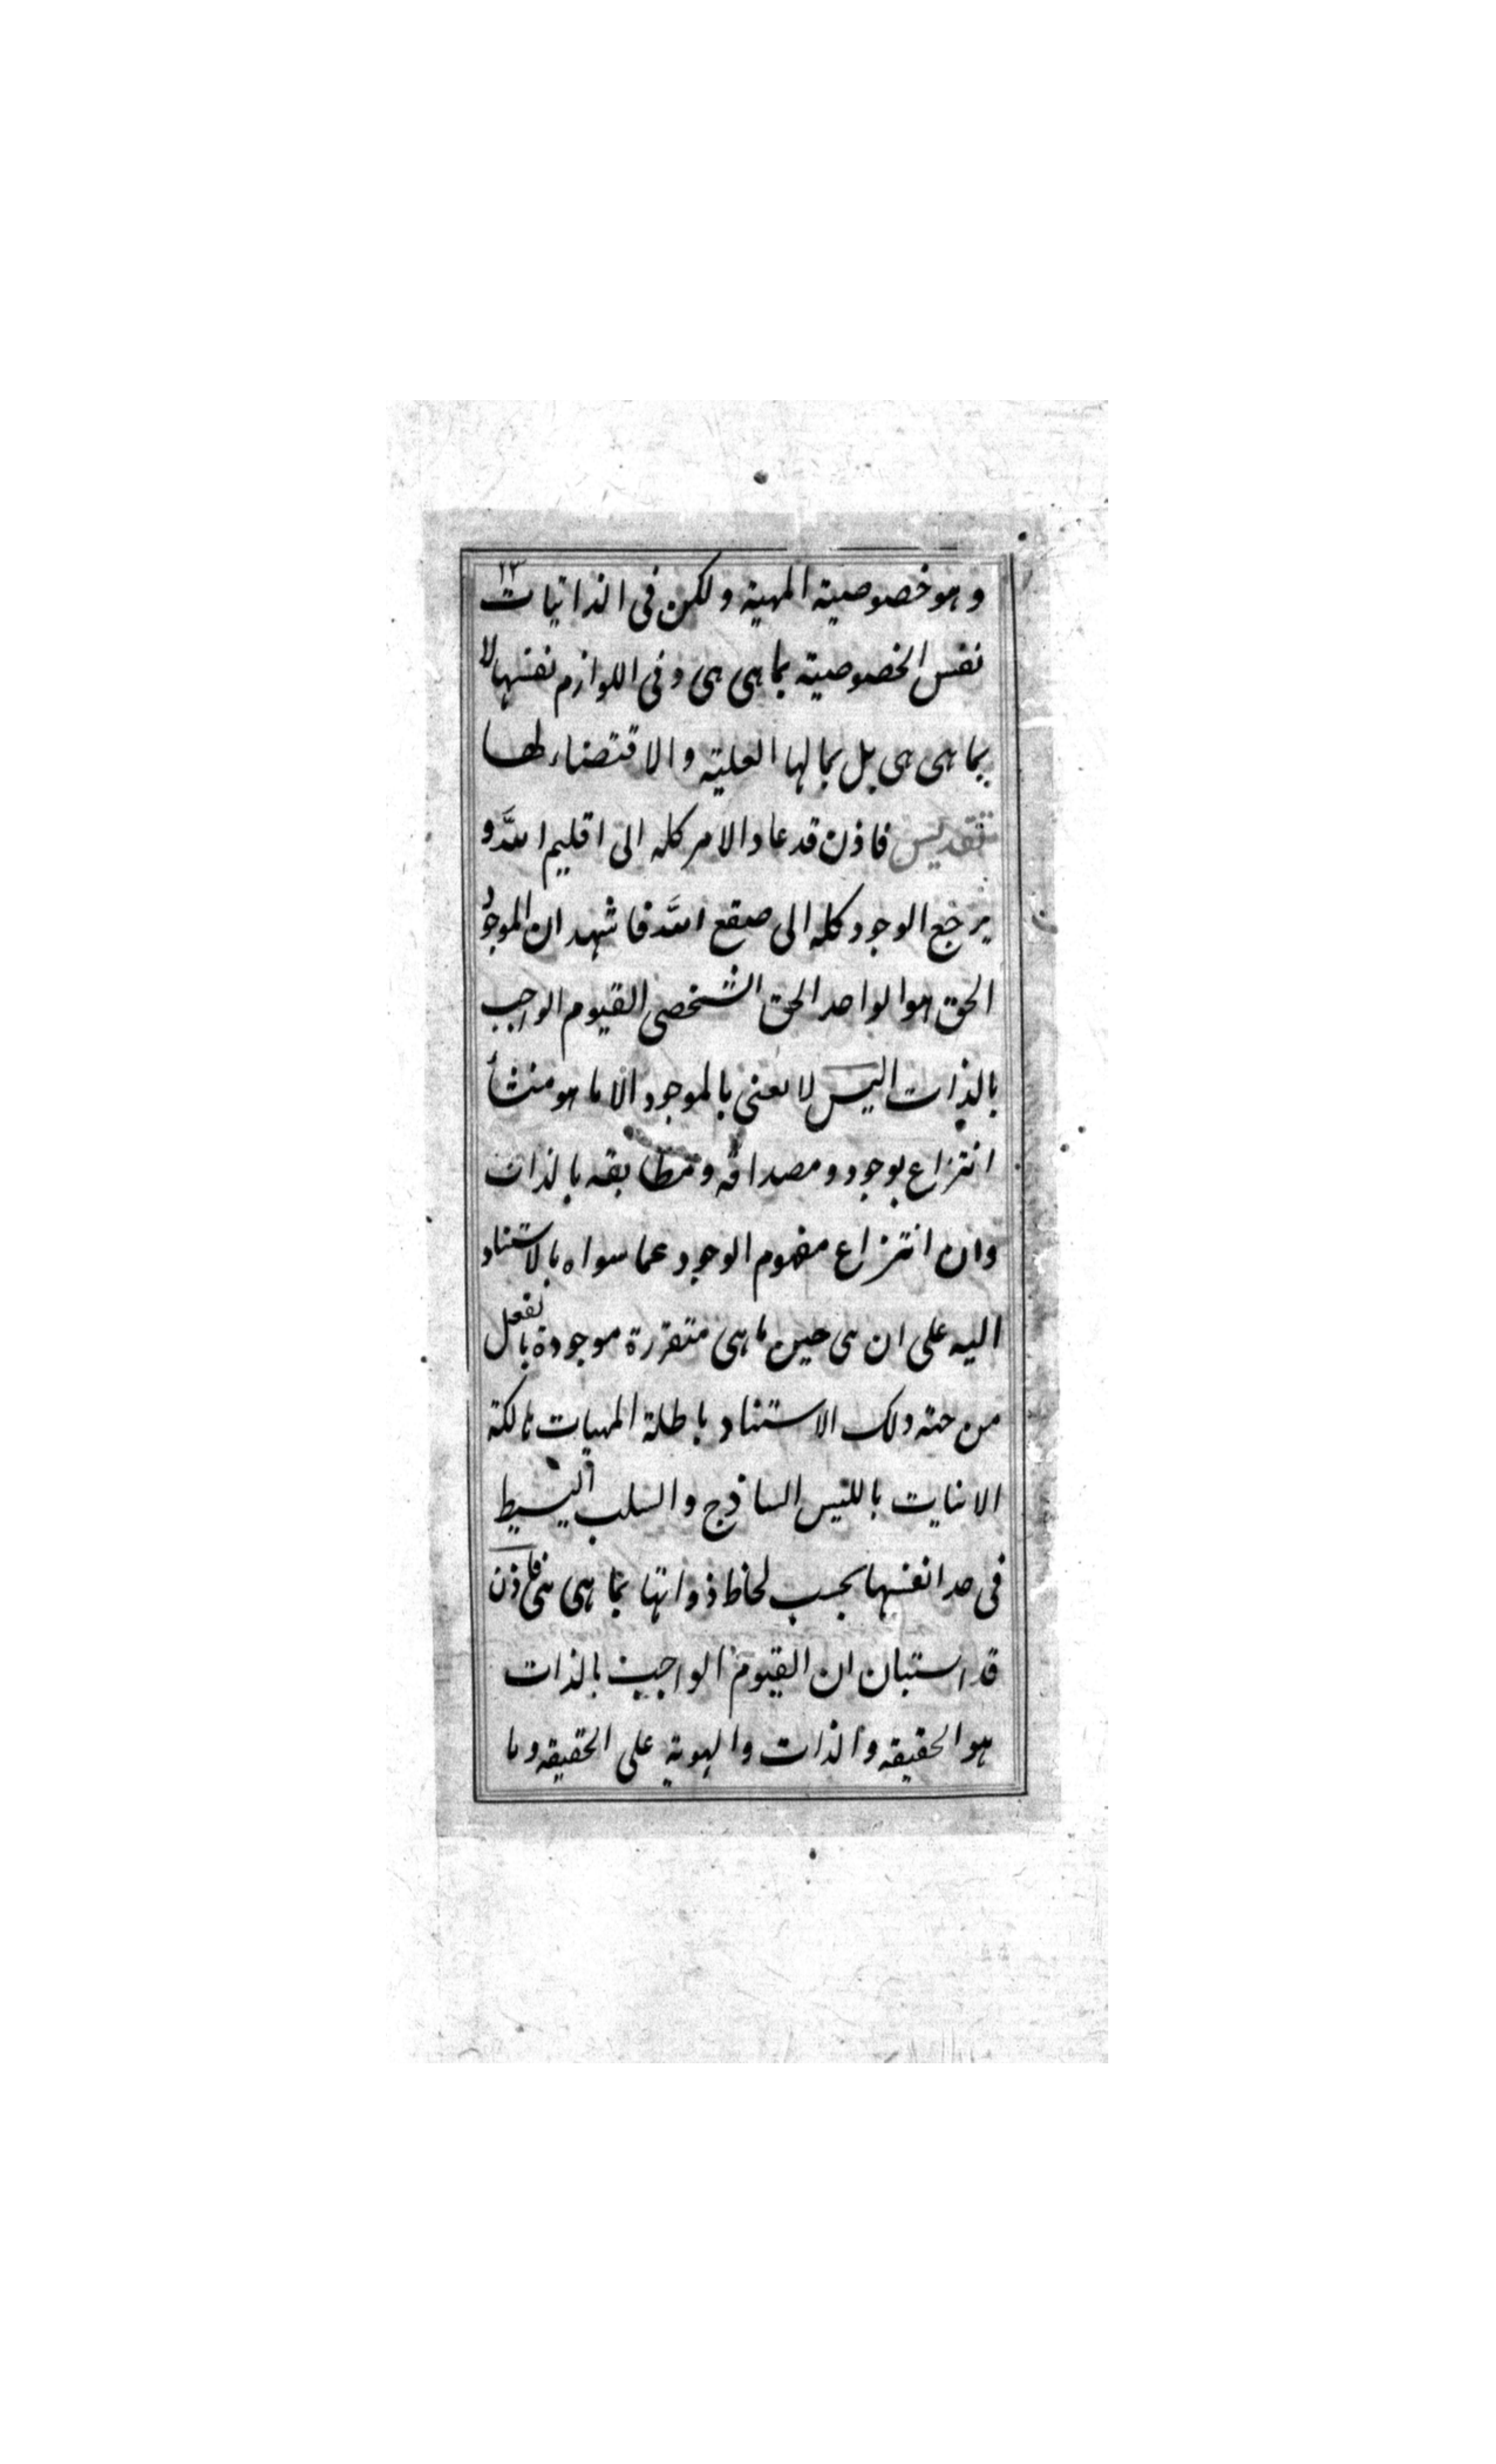 ١٣
وهو خصوصية المهية ولكن فى الذاتيات
نفس الخصوصية بما هى هى وفى اللوازم نفسها لا
بما هى هى بل بما لها العلية والاقتضاء لها
تقديس فاذن قد عاد الامر كله الى اقليم الله و
يرجع الوجود كله الى صقع الله فاشهد ان الموجود
الحق هو الواحد الحق الشخصى القيوم الواجب
بالذات اليس لا نعنى بالموجود الا ما هو منشأ
انتزاع بوجود ومصداقه ومطابقه بالذات
وان انتزاع مفهوم الوجود عما سواه بالاستناد
اليه على ان هى حين ما هى متقررة موجودة بالفعل
من جهة ذلك الاستناد باطلة المهيات هالكة
الانيات بالليس الساذج والسلب البسيط
فى حد انفسها بحسب لحاظ ذواتها بما هى هى فاذن
قد استبان ان القيوم الواجب بالذات
هو الحقيقه والذات والهوية على الحقيقه وما